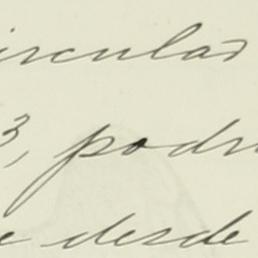 ircular
3, podr
e desde